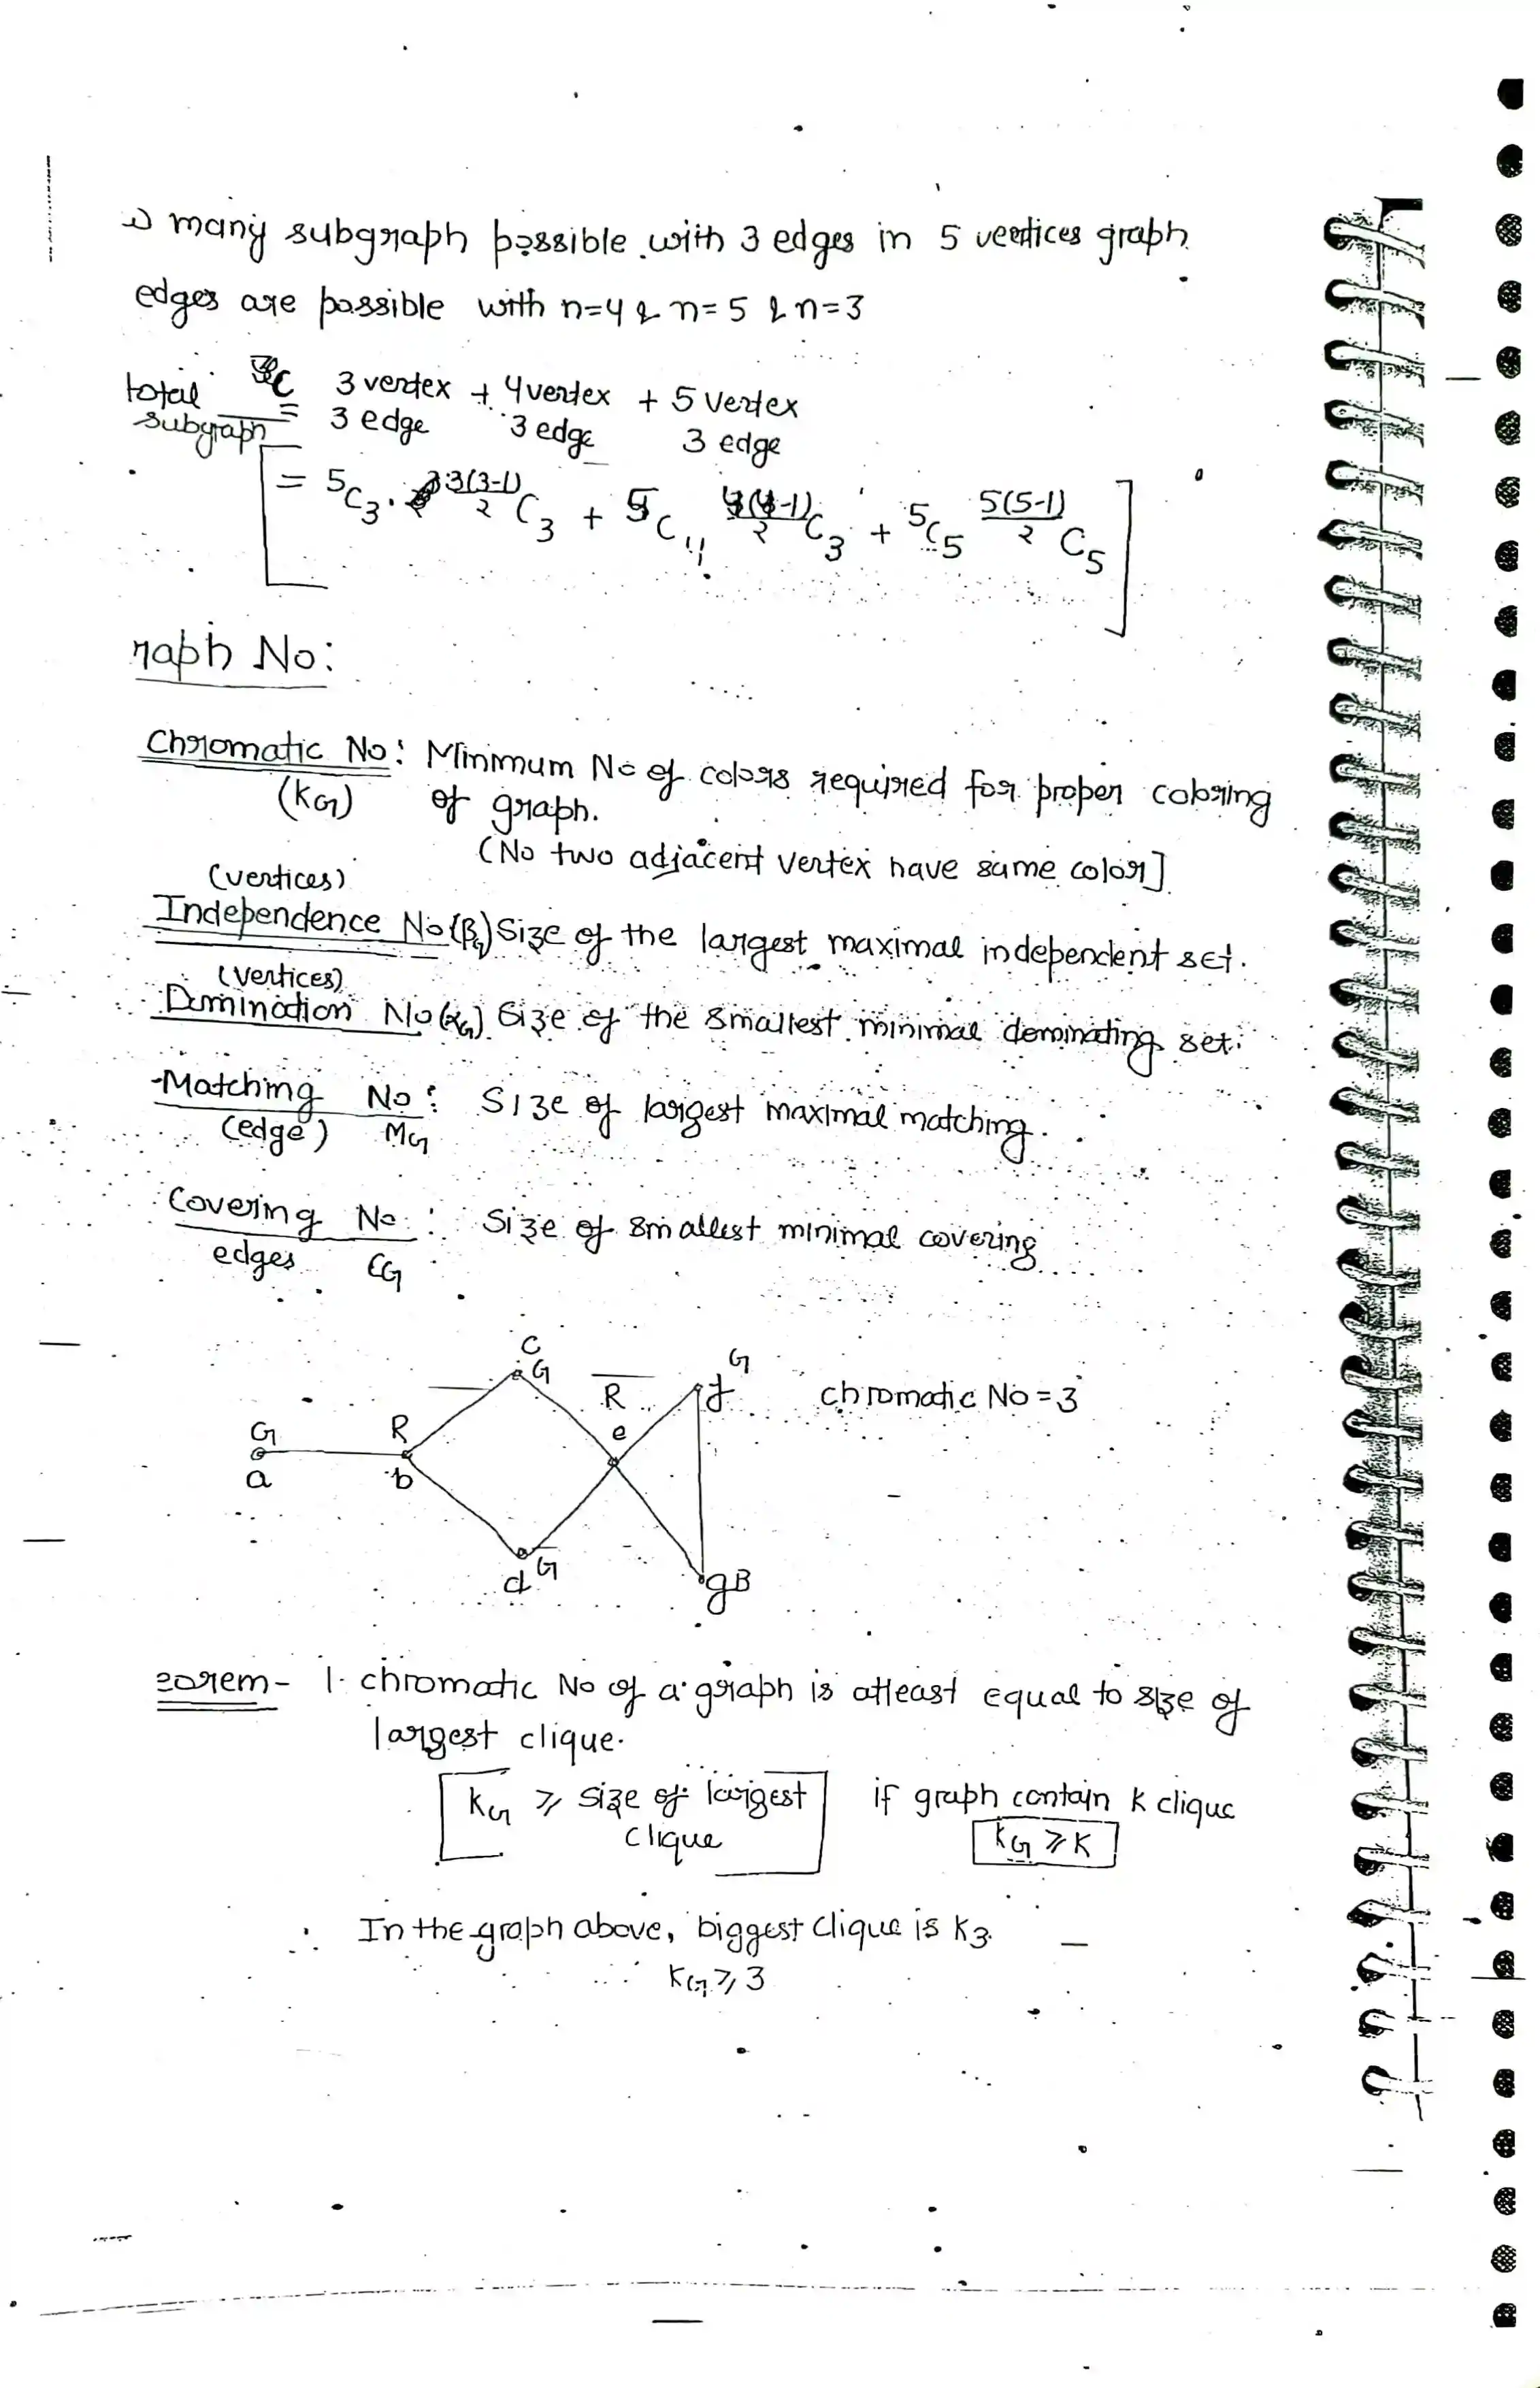 many subgraph possible with 3 edges in 5 vertices graph
edges are possible with n=4 & n=5 & n=3
total subgraph = 3 vertex 3 edge + 4 vertex 3 edge + 5 vertex 3 edge
= ⁵C₃ · 3(3-1)/2 C₃ + ⁵C₄ 4(4-1)/2 C₃ + ⁵C₅ 5(5-1)/2 C₅
raph No:
Chromatic No: Minimum No of colors required for proper coloring
(KG) of graph.
(No two adjacent vertex have same color]
(vertices)
Independence No(βG) Size of the largest maximal independent set.
(vertices)
Domination No(αG) Size of the smallest minimal dominating set.
Matching No: Size of largest maximal matching.
(edge) MG
Covering No: Size of smallest minimal covering
edges CG
C
G
G
R
f
chromatic No = 3
G
R
e
a
b
d G
g B
eorem- 1. chromatic No of a graph is atleast equal to size of
largest clique.
KG ⩾ size of largest if graph contain k clique
clique KG ⩾ K
∴ In the graph above, biggest clique is K3.
KG ⩾ 3